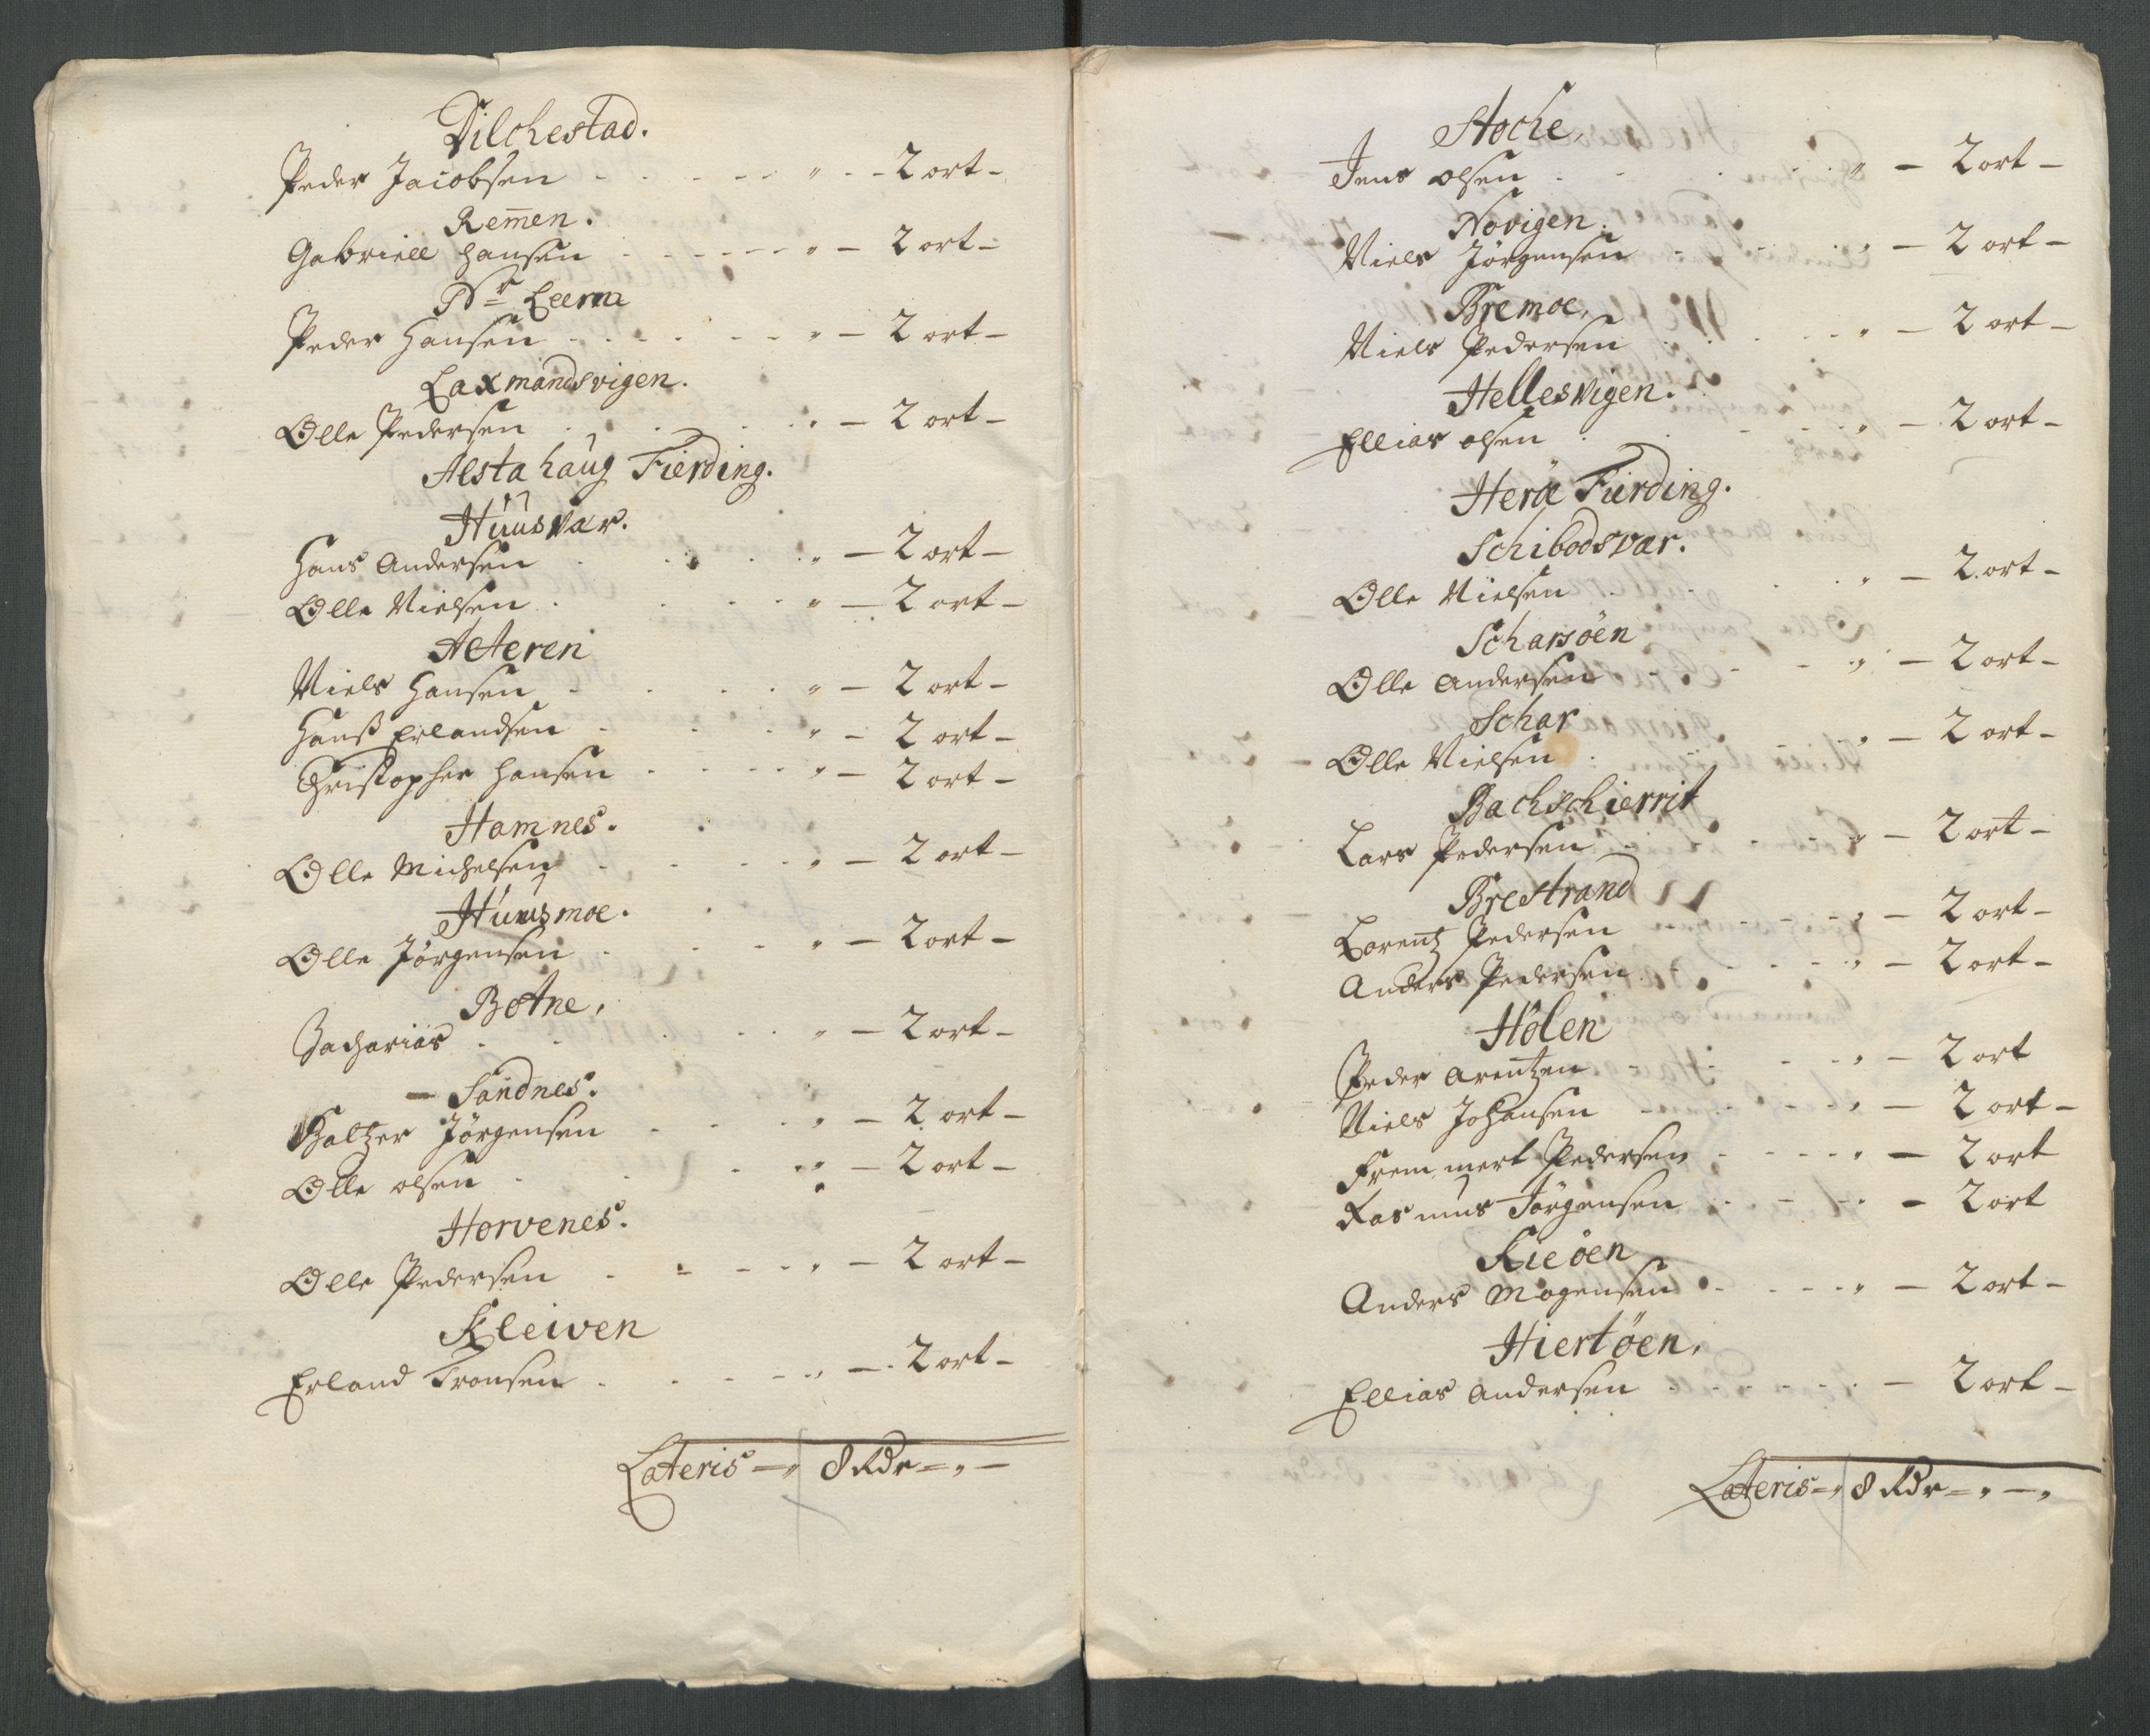 Dilchestad.
Peder Jacobsen - - - - - " - - 2 ort -
Remen.
Gabriell Hansen - - - - - - " - 2 ort -
Nr Leerm
Peder Hansen - - - - - - " - 2 ort -
Laxmandsvigen.
Olle Pedersen - - - - " - 2 ort -
Alstahaug Fierding.
Huusvær.
Hans Andersen - - - - " - 2 ort -
Olle Nielsen - - - - " - 2 ort -
Aeteren
Niels Hansen - - - - " - 2 ort -
Hanß Erlandsen - - - - " - 2 ort -
Christopher Hansen - - - - " - 2 ort -
Hamnes.
Olle Michelsen - - - - " - 2 ort -
Huusmoe.
Olle Jörgensen - - - - " - 2 ort -
Botne,
Zacharias - - - - " - 2 ort -
- Sandnes.
Baltzer Jörgensen - - - - " - 2 ort -
Olle olsen - - - " - 2 ort -
Horvenes.
Olle Pedersen - - - - - " - 2 ort -
Kleiven
Erland Tronsen - - - - - " - 2 ort -
Lateris - " 8 Rdr = " -
Stoche,
Jens olsen - - - - " - 2 ort -
Novigen.
Niels Jörgensen - - - - " - 2 ort -
Bremoe,
Niels Pedersen - - - - " - 2 ort -
Hellesvigen.
Ellias olsen - - - - " - 2 ort -
Heröe Fierding.
Schibodsvær.
Olle Nielsen - - - - " - 2 ort -
Scharsöen
Olle Andersen - - - - " - 2 ort -
Schar
Olle Nielsen - - - - " - 2 ort -
Bachschierrit
Lars Pedersen - - - - " - 2 ort -
Brestrand
Lorentz Pedersen - - - - " - 2 ort -
Anders Pedersen - - - - " - 2 ort -
Hölen
Peder Arentzen - - - - " - 2 ort
Niels Johansen - - - - " - 2 ort -
Fremmert Pedersen - - - - " - 2 ort
Rasmus Jörgensen - - - - " - 2 ort
Kieöen
Anders Mogensen - - - - " - 2 ort -
Hiertöen,
Ellias Andersen - - - - - - 2 ort -
Lateris = " 8 Rdr = " - "